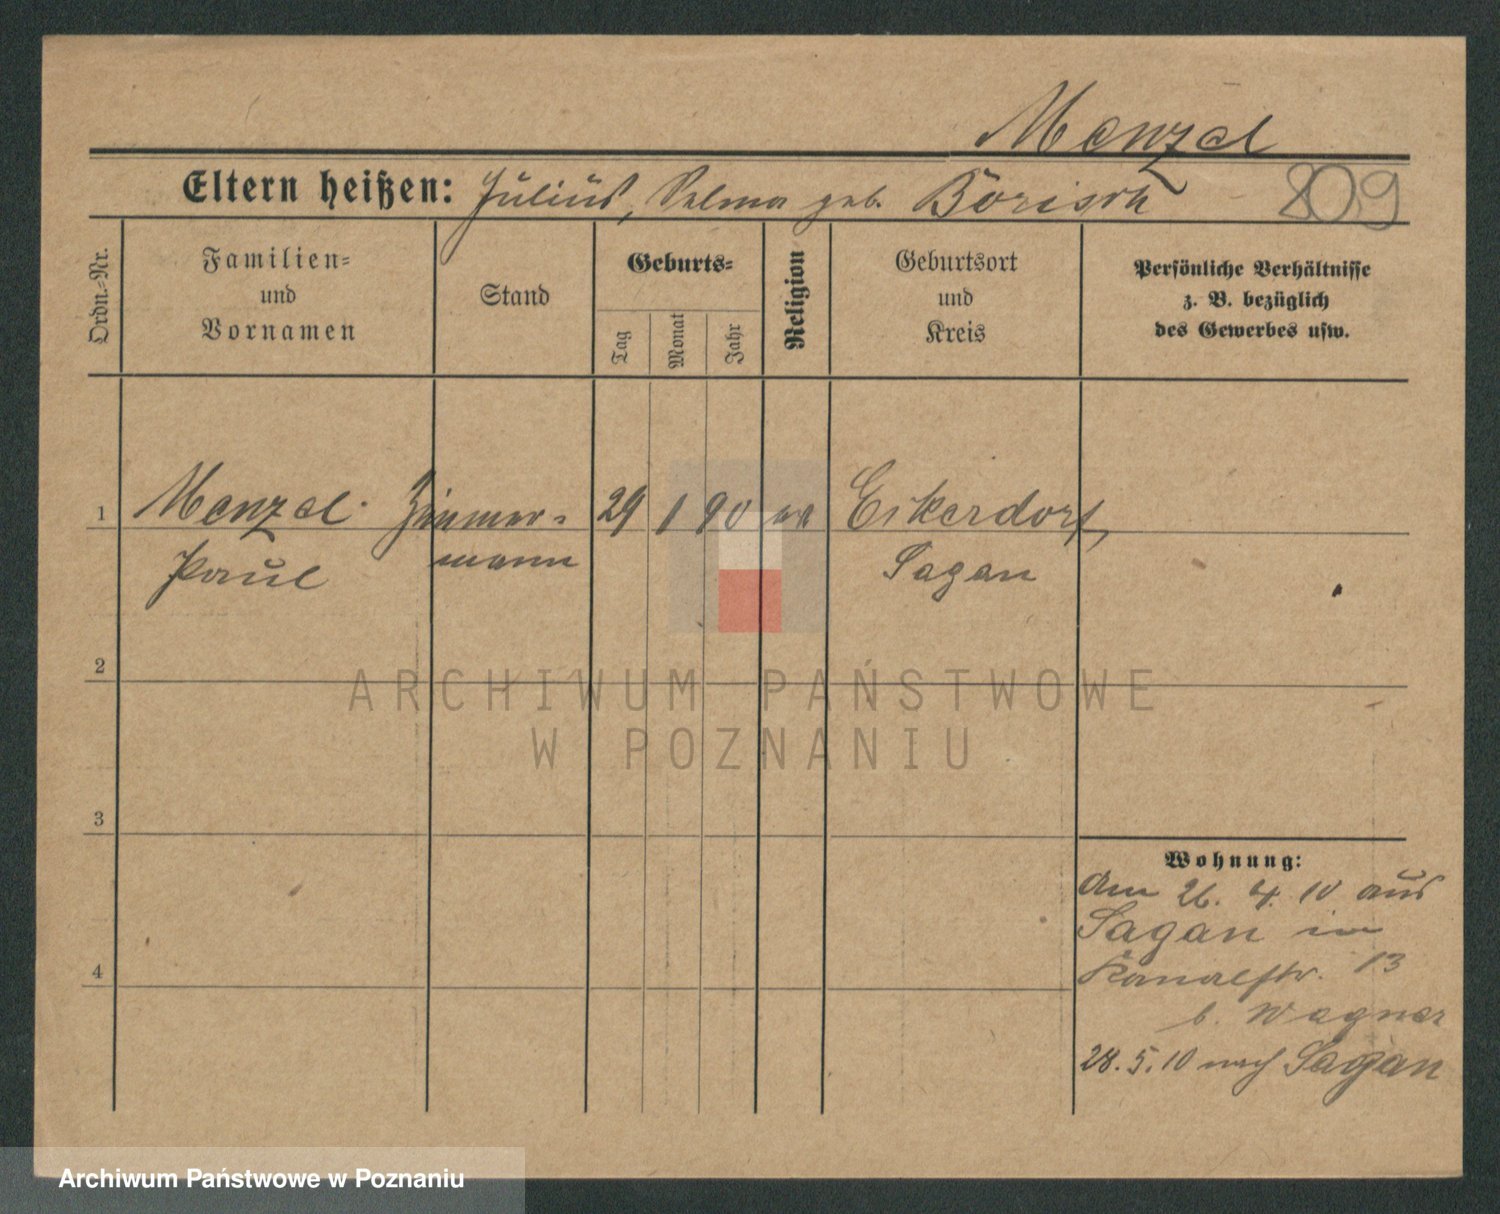 Menzel
Eltern heißen: Julius, Selma geb. Börisch 809
Ordn.-Nr.
Familien-
und
Vornamen
Stand
Geburts-
Tag
Monat
Jahr
Religion
Geburtsort
und
Kreis
Persönliche Verhältnisse
z. B. bezüglich
des Gewerbes usw.
1 Menzel Zimmer- 29 1 90 Eckersdorf,
Paul mann Sagan
2
ARCHIWUM PAŃSTWOWE
W POZNANIU
3
Wohnung:
Am 26. 4. 10 aus
Sagan in
4
Kanalstr. 13
b. Wagner
28. 5. 10 nach Sagan
Archiwum Państwowe w Poznaniu